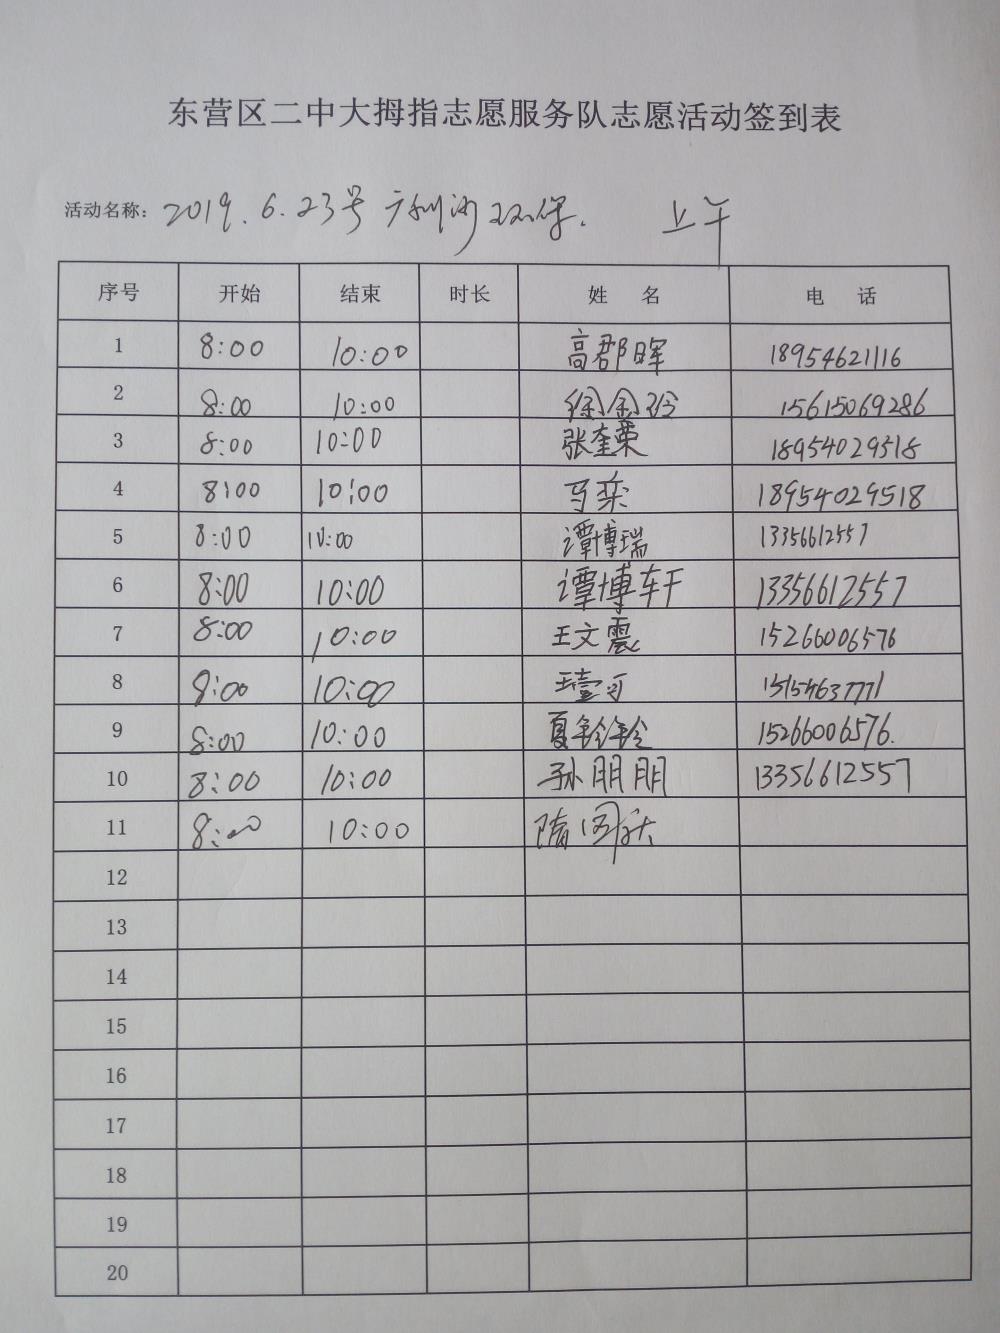 东营区二中大拇指志愿服务队志愿活动签到表
活动名称：2019.6.23号 广利河环保. 上午
序号 开始 结束 时长 姓 名 电 话
1 8:00 10:00 高郡晖 18954621116
2 8:00 10:00 徐 15615069286
3 8:00 10:00 张奎荣 18954029518
4 8:00 10:00 马栾 18954029518
5 8:00 10:00 谭博瑞 13356612557
6 8:00 10:00 谭博轩 13356612557
7 8:00 10:00 王文震 15266006576
8 8:00 10:00
9 8:00 10:00 夏铃铃 15266006576.
10 8:00 10:00 孙朋朋 13356612557
11 8:00 10:00 隋国秋
12
13
14
15
16
17
18
19
20